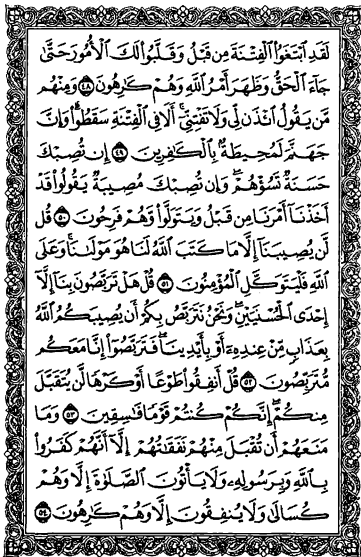 لَقَدِ ٱبْتَغَوُا۟ ٱلْفِتْنَةَ مِن قَبْلُ وَقَلَّبُوا۟ لَكَ ٱلْأُمُورَ حَتَّىٰ
جَآءَ ٱلْحَقُّ وَظَهَرَ أَمْرُ ٱللَّهِ وَهُمْ كَـٰرِهُونَ ٤٨ وَمِنْهُم
مَّن يَقُولُ ٱئْذَن لِّى وَلَا تَفْتِنِّىٓ أَلَا فِى ٱلْفِتْنَةِ سَقَطُوا۟ وَإِنَّ
جَهَنَّمَ لَمُحِيطَةٌۢ بِٱلْكَـٰفِرِينَ ٤٩ إِن تُصِبْكَ
حَسَنَةٌ تَسُؤْهُمْ وَإِن تُصِبْكَ مُصِيبَةٌ يَقُولُوا۟ قَدْ
أَخَذْنَآ أَمْرَنَا مِن قَبْلُ وَيَتَوَلَّوا۟ وَّهُمْ فَرِحُونَ ٥٠ قُل
لَّن يُصِيبَنَآ إِلَّا مَا كَتَبَ ٱللَّهُ لَنَا هُوَ مَوْلَىٰنَا وَعَلَى
ٱللَّهِ فَلْيَتَوَكَّلِ ٱلْمُؤْمِنُونَ ٥١ قُلْ هَلْ تَرَبَّصُونَ بِنَآ إِلَّآ
إِحْدَى ٱلْحُسْنَيَيْنِ وَنَحْنُ نَتَرَبَّصُ بِكُمْ أَن يُصِيبَكُمُ ٱللَّهُ
بِعَذَابٍ مِّنْ عِندِهِۦٓ أَوْ بِأَيْدِينَا فَتَرَبَّصُوٓا۟ إِنَّا مَعَكُم
مُّتَرَبِّصُونَ ٥٢ قُلْ أَنفِقُوا۟ طَوْعًا أَوْ كَرْهًا لَّن يُتَقَبَّلَ
مِنكُمْ إِنَّكُمْ كُنتُمْ قَوْمًا فَـٰسِقِينَ ٥٣ وَمَا
مَنَعَهُمْ أَن تُقْبَلَ مِنْهُمْ نَفَقَـٰتُهُمْ إِلَّآ أَنَّهُمْ كَفَرُوا۟
بِٱللَّهِ وَبِرَسُولِهِۦ وَلَا يَأْتُونَ ٱلصَّلَوٰةَ إِلَّا وَهُمْ
كُسَالَىٰ وَلَا يُنفِقُونَ إِلَّا وَهُمْ كَـٰرِهُونَ ٥٤